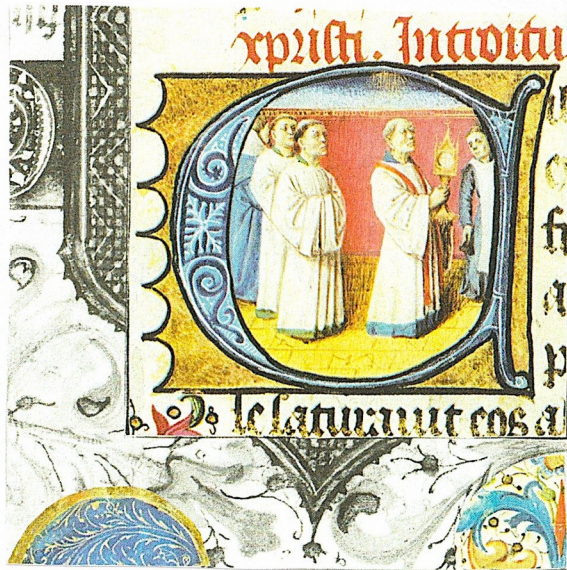 xpristi. Introitu
C
le saturauit eos al